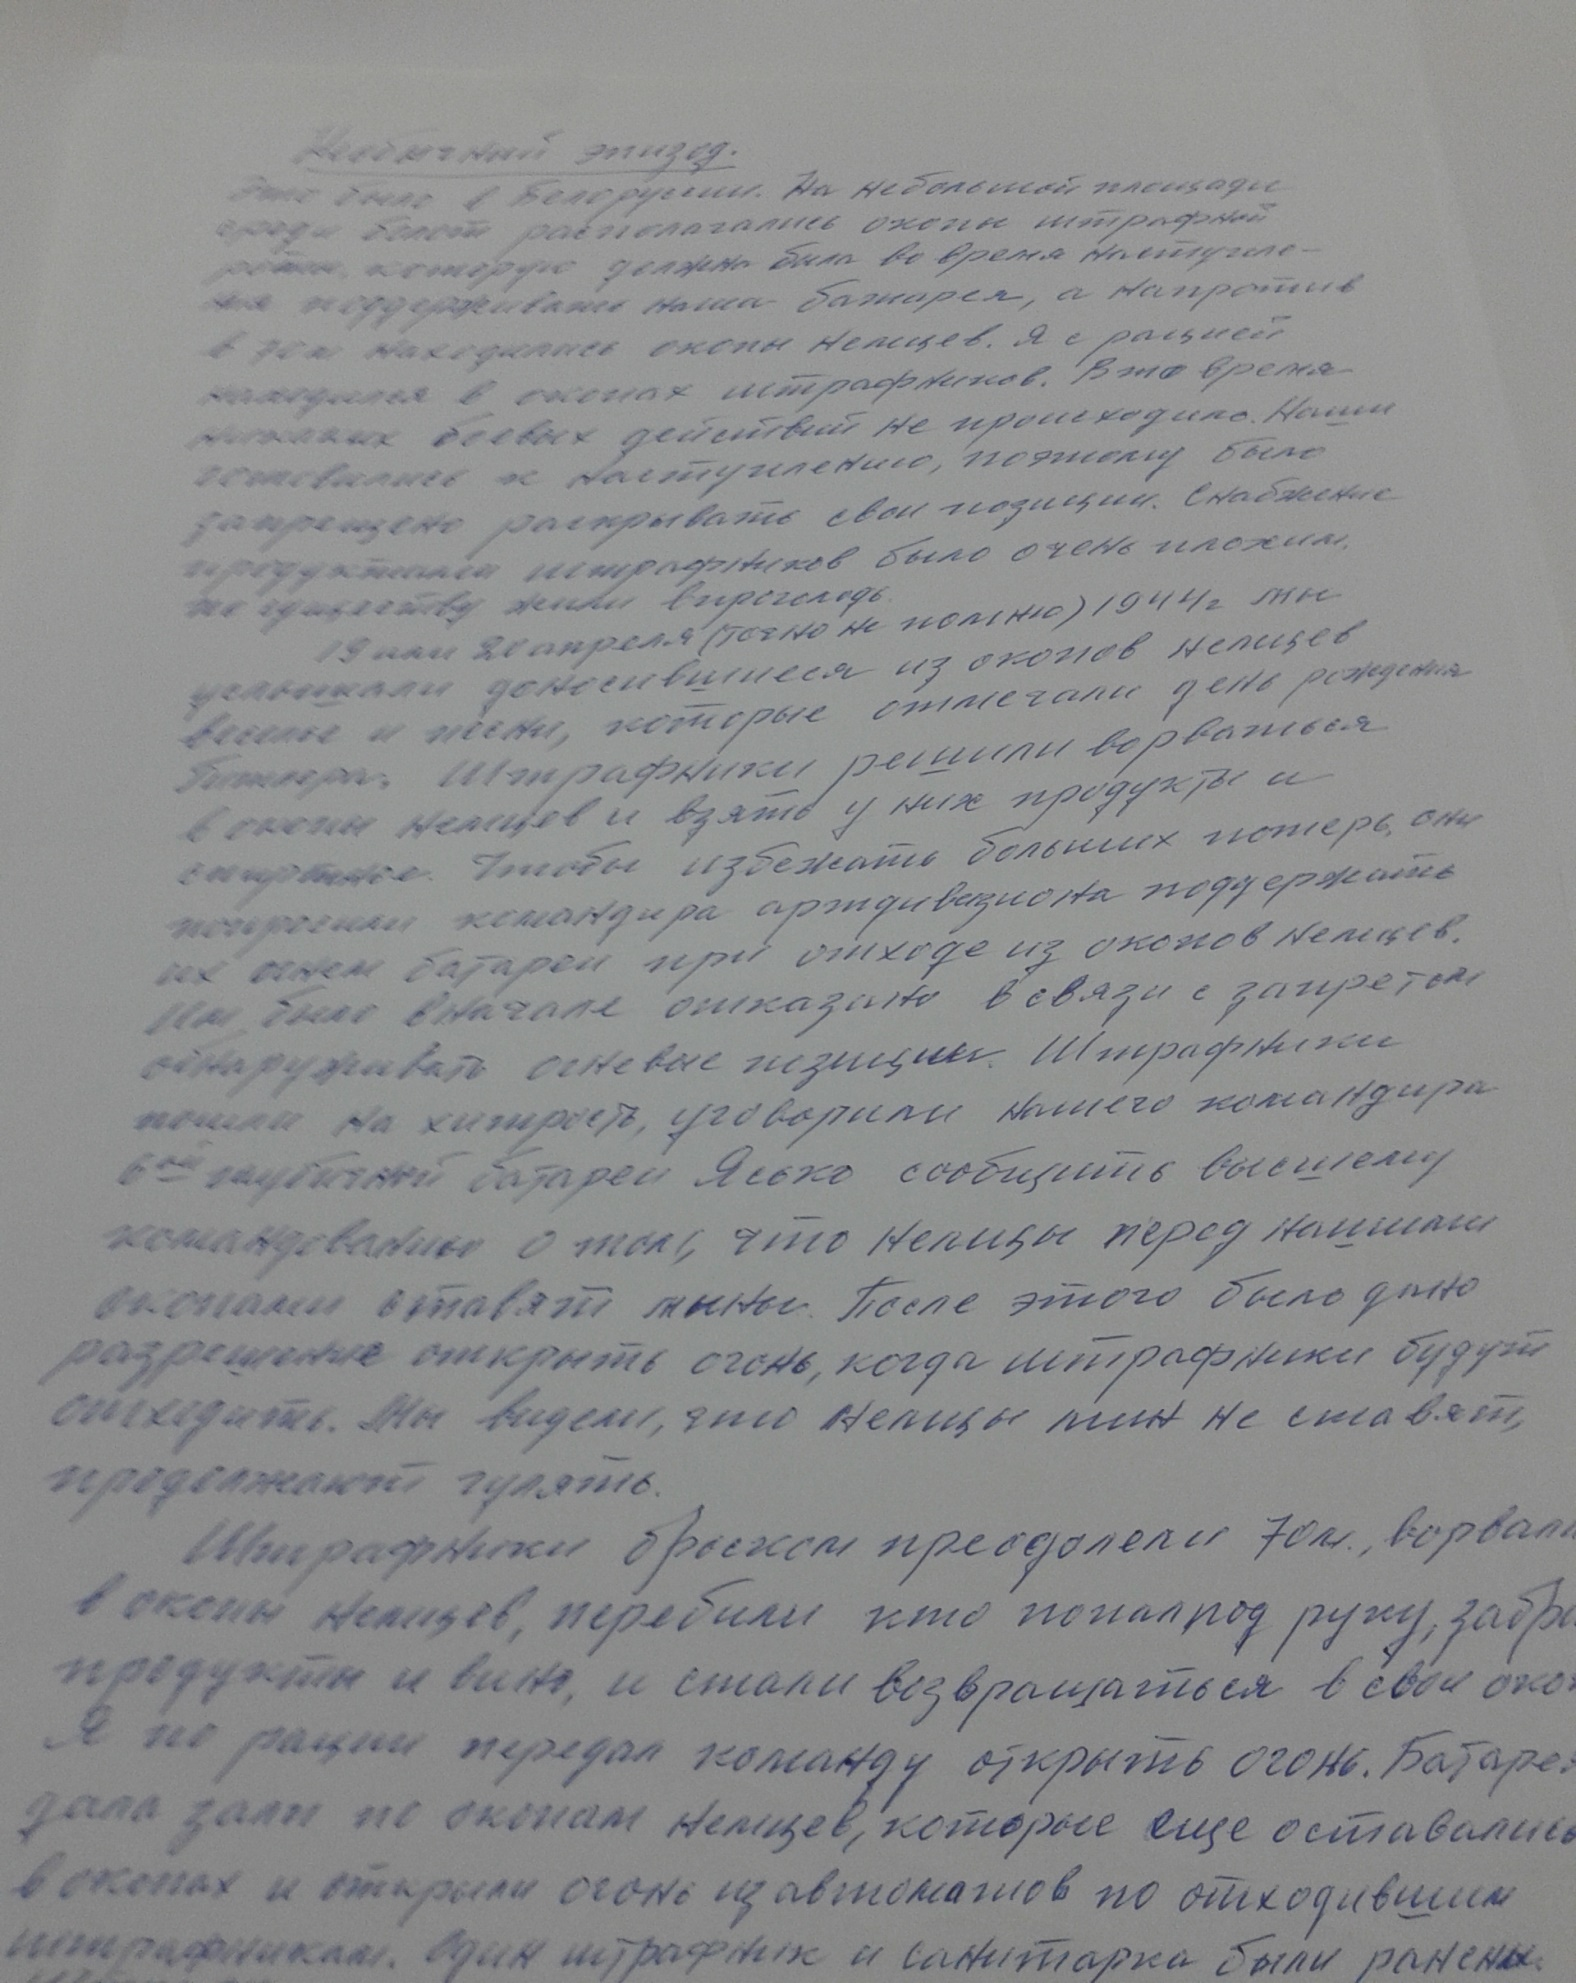 Необычный эпизод.
Это было в Белоруссии. На небольшой площади
среди болот располагались окопы штрафной
роты, которую должна была во время наступле-
ния поддерживать наша батарея, а напротив
в 70 м находились окопы немцев. Я с рацией
находился в окопах штрафников. В то время
никаких боевых действий не происходило. Наши
готовились к наступлению, поэтому было
запрещено раскрывать свои позиции. Снабжение
продуктами штрафников было очень плохим,
по существу жили впроголодь.
19 или 20 апреля (точно не помню) 1944 г мы
услышали доносившиеся из окопов немцев
веселье и песни, которые отмечали день рождения
Гитлера. Штрафники решили ворваться
в окопы немцев и взять у них продукты и
спиртное. Чтобы избежать больших потерь, они
попросили командира артдивизиона поддержать
их огнем батареи при отходе из окопов немцев.
Им было вначале отказано в связи с запретом
обнаруживать огневые позиции. Штрафники
пошли на хитрость, уговорили нашего командира
6ой гаубичной батареи Ясько сообщить высшему
командованию о том, что немцы перед нашими
окопами ставят мины. После этого было дано
разрешение открыть огонь, когда штрафники будут
отходить. Мы видели, что немцы мин не ставят,
продолжают гулять.
Штрафники броском преодолели 70м., ворвали
в окопы немцев, перебили кто попал под руку, забра
продукты и вино, и стали возвращаться в свои око
Я по рации передал команду открыть огонь. Батаре
дала залп по окопам немцев, которые еще оставались
в окопах и открыли огонь из автоматов по отходившим
штрафникам. Один штрафник и санитарка были ранены.